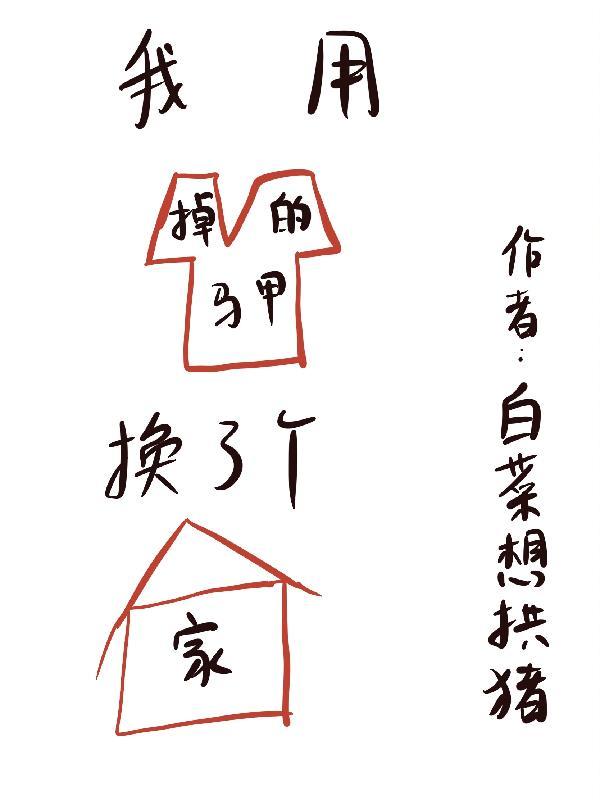 我用
掉的
马甲
换了个
家
作者：白菜想拱猪